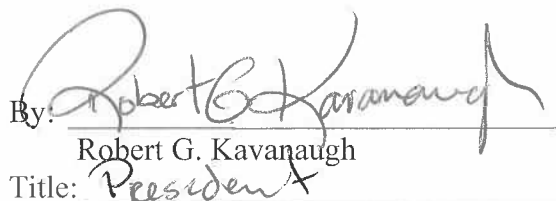 By: Robert G Kavanaugh
Robert G. Kavanaugh
Title: President